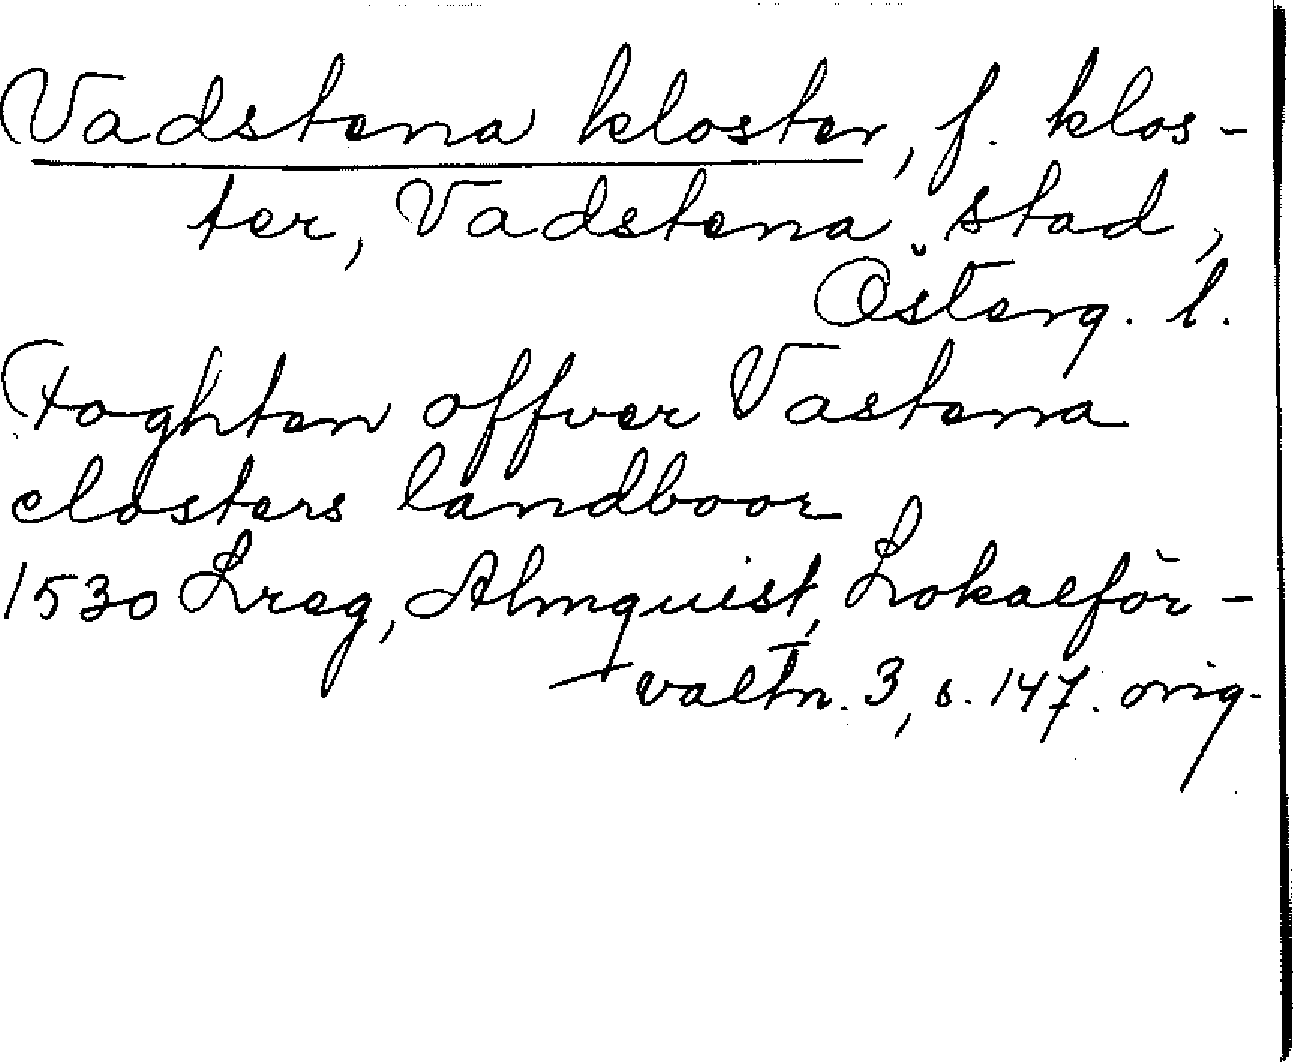 Vadstena kloster, f. klos-
ter, Vadstena stad,
Österg. l.
Foghten offver Vastena
closters landboor
1530 Lreg, Almquist, Lokalför-
valtn. 3, s. 147. orig.